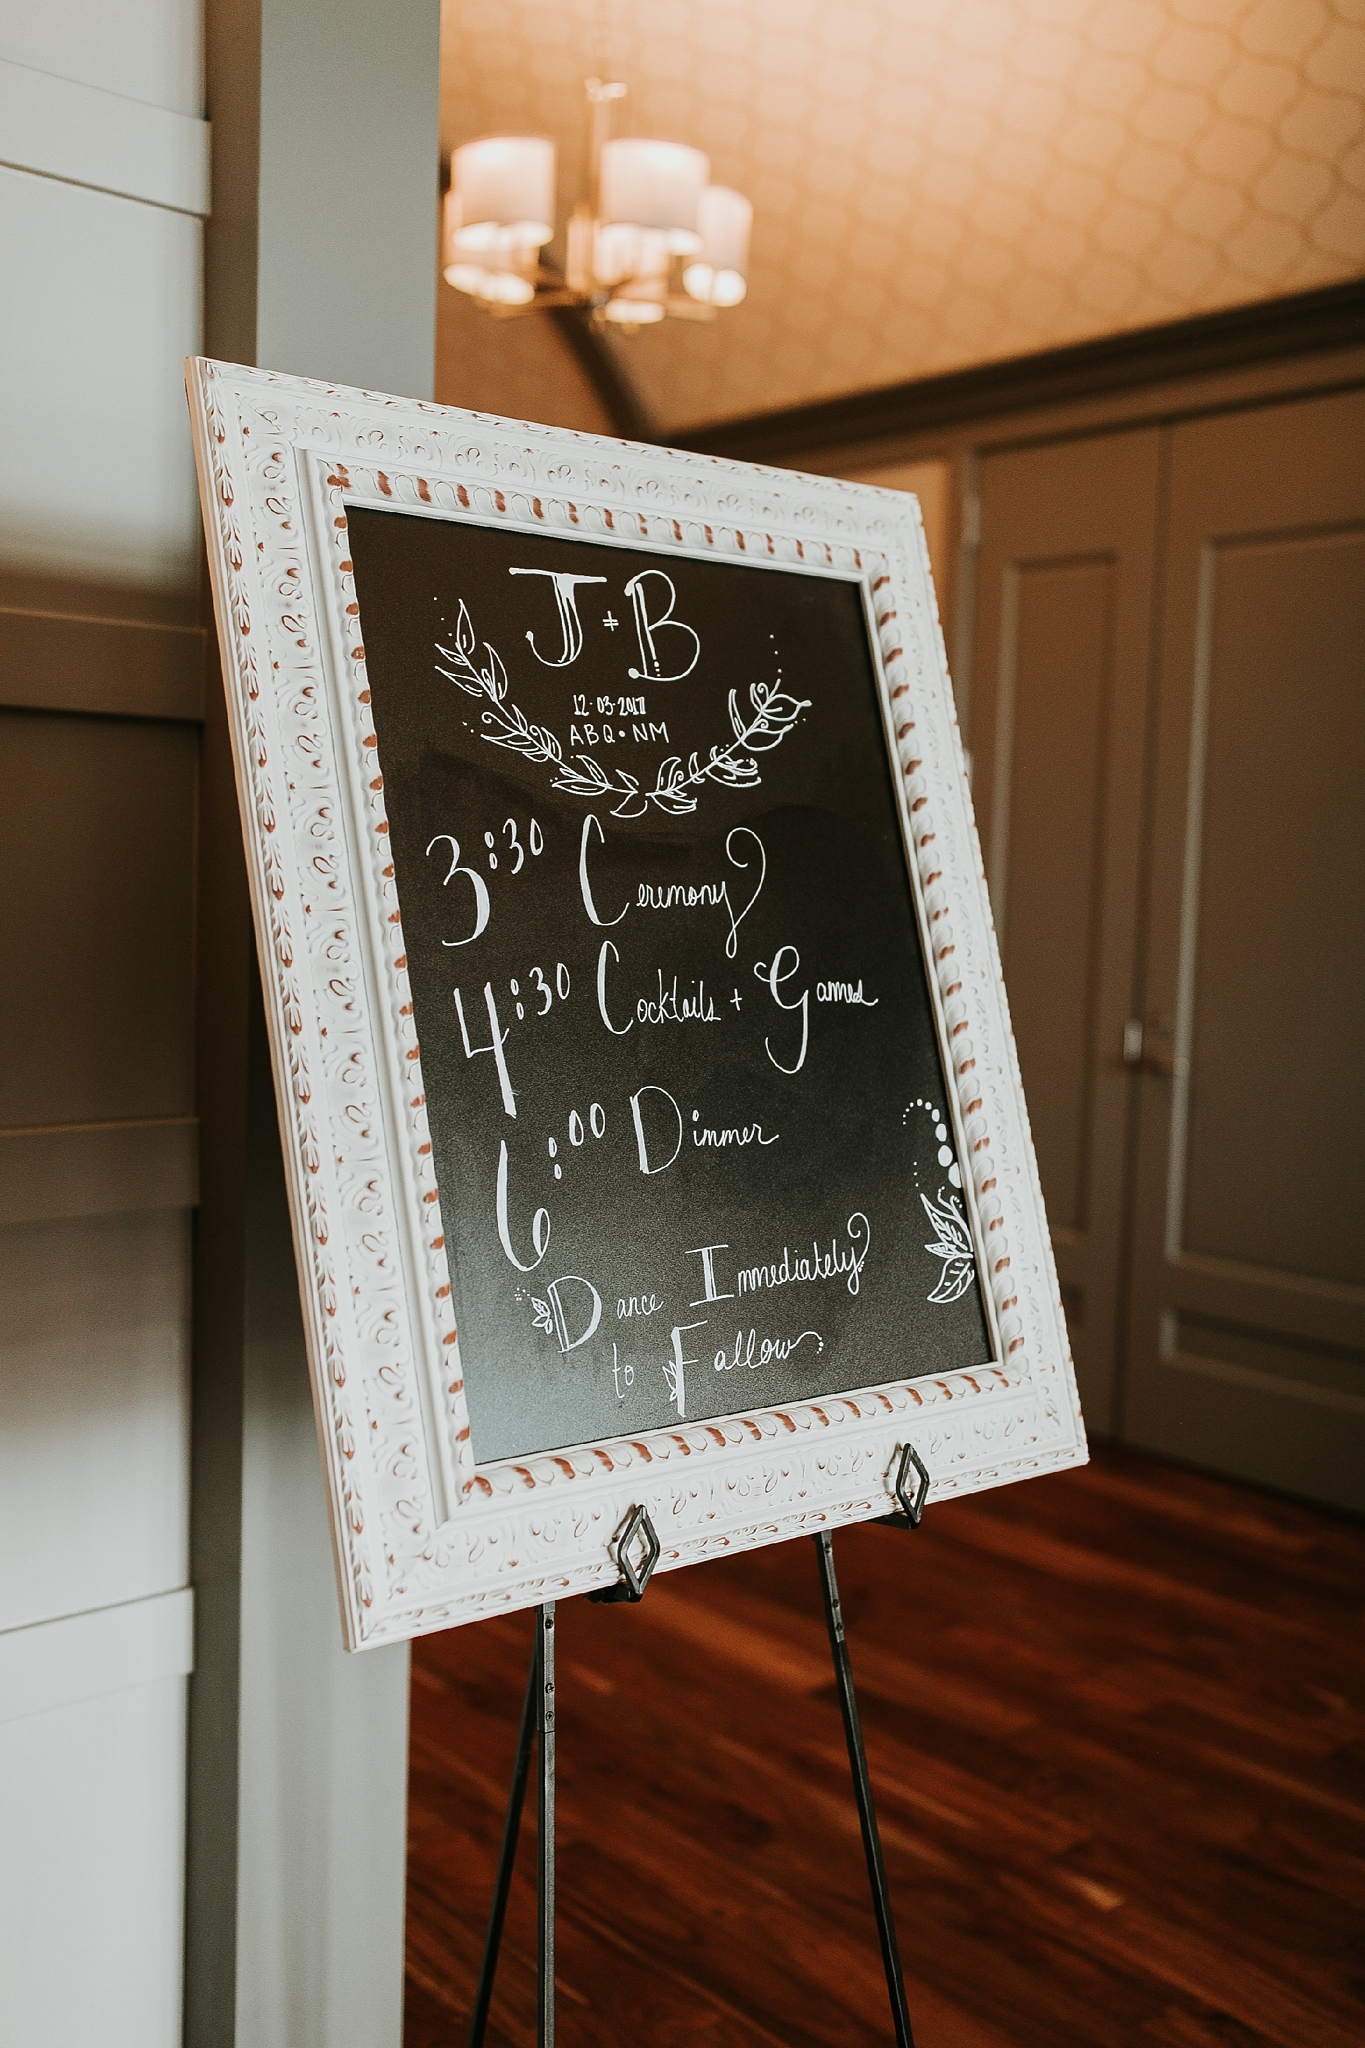 J + B
12·03·2017
ABQ • NM
3:30 Ceremony
4:30 Cocktails + Games
6:00 Dinner
Dance Immediately
to Follow